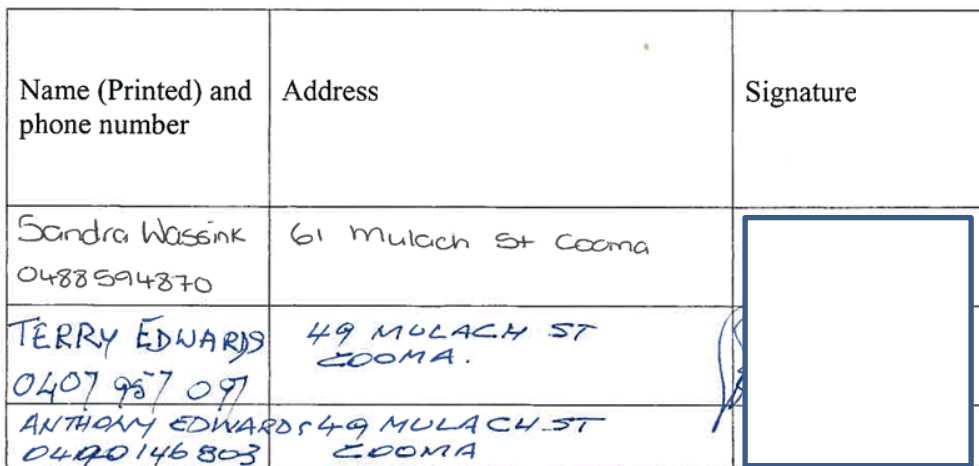 Name (Printed) and
phone number
Address
Signature
Sandra Wassink
0488594870
61 Mulach St Cooma
TERRY EDWARDS
0407 957 097
49 MULACH ST
COOMA.
ANTHONY EDWARDS
49 MULACH ST
COOMA